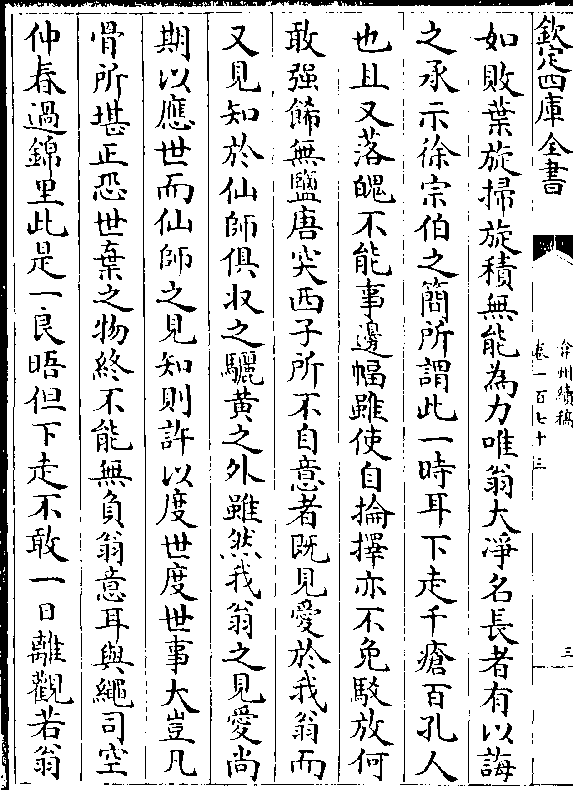 欽定四庫全書
弇州續稿
卷一百七十三
三
如敗葉旋掃旋積無能為力唯翁大凈名長者有以誨
之承示徐宗伯之簡所謂此一時耳下走千瘡百孔人
也且又落魄不能事邊幅雖使自掄擇亦不免駁放何
敢强餙無鹽唐突西子所不自意者既見愛於我翁而
又見知於仙師俱収之驪黄之外雖然我翁之見愛尚
期以應世而仙師之見知則許以度世度世事大豈凡
骨所堪正恐世棄之物終不能無負翁意耳與繩司空
仲春過錦里此是一良晤但下走不敢一日離觀若翁